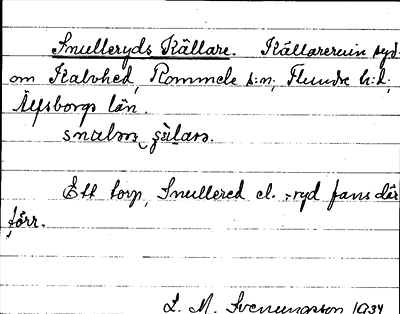 Snulleryds Källare. Källareruin syd
om Kalvhed, Rommele s:n, Flundre h:d,
Älfsborgs län.
Ett torp, Snullered el. -ryd fans där
förr.
S. M. Svenungsson 1934